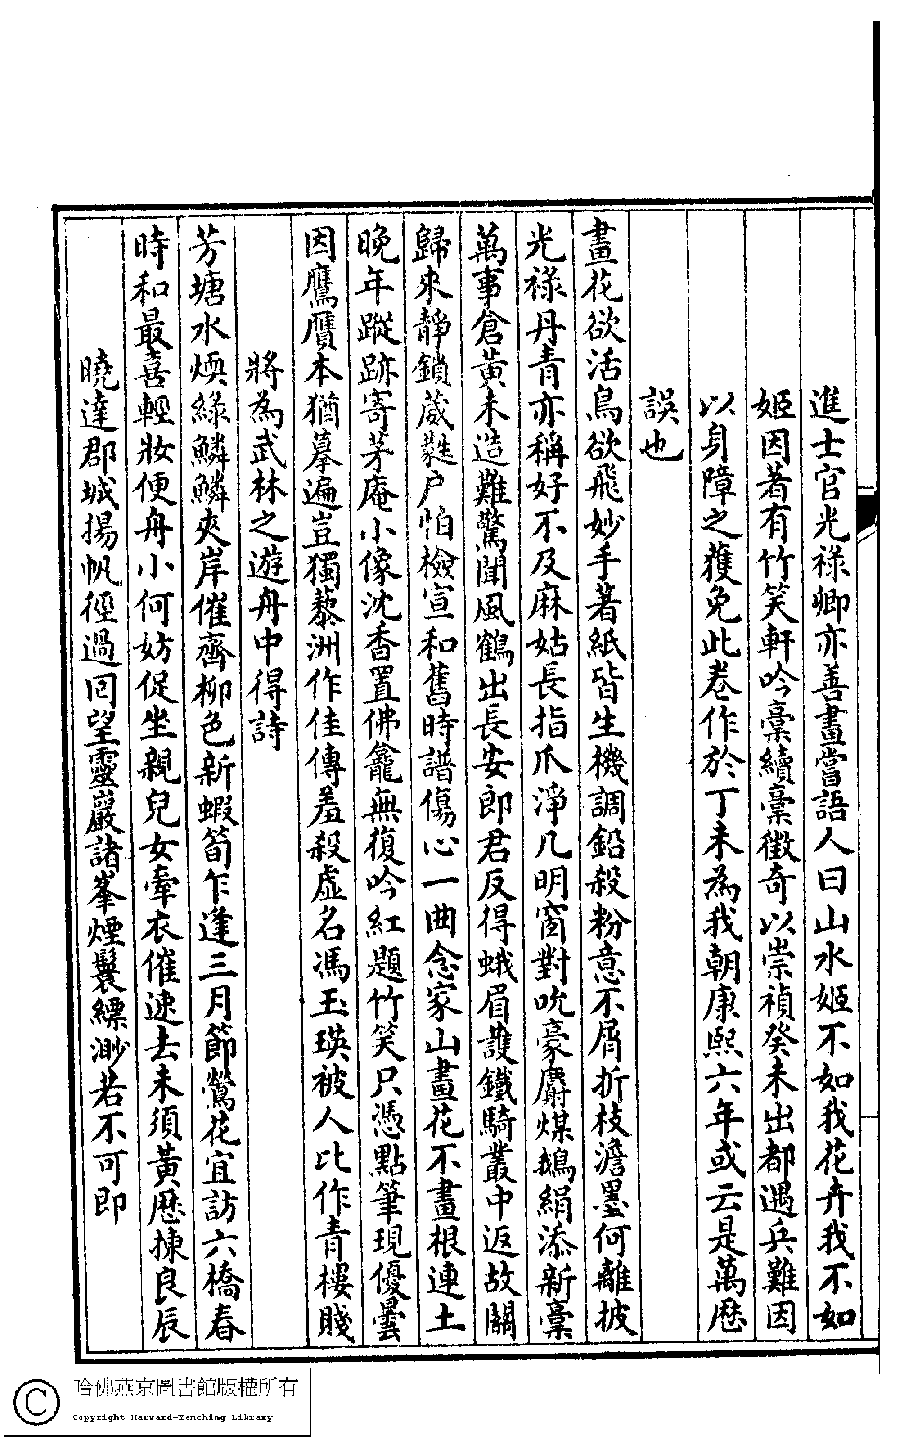 進士官光祿卿亦善畫嘗語人曰山水姬不如我花卉我不如
姬因著有竹笑軒吟稾續稾徵奇以崇禎癸未出都遇兵難因
以身障之獲免此卷作於丁未為我朝康熙六年或云是萬歷
誤也
畫花欲活鳥欲飛妙手著紙皆生機調鉛殺粉意不屑折枝澹墨何離披
光祿丹青亦稱好不及麻姑長指爪淨几明窗對吮豪麝煤鵝絹添新稾
萬事倉黃未造難驚聞風鶴出長安郎君反得蛾眉護鐵騎叢中返故關
歸來靜鎖葳蕤戶怕檢宣和舊時譜傷心一曲念家山畫花不畫根連土
晚年蹤跡寄茅庵小像沈香置佛龕無復吟紅題竹笑只憑點筆現優曇
因鷹贗本猶摹遍豈獨藜洲作佳傳羞殺虛名馮玉瑛被人比作青樓賤
將為武林之遊舟中得詩
芳塘水煗綠鱗鱗夾岸催齊柳色新蝦筍乍逢三月節鶯花宜訪六橋春
時和最喜輕妝便舟小何妨促坐親兒女牽衣催速去未須黃歷揀良辰
曉達郡城揚帆徑過回望靈巖諸峯煙鬟縹渺若不可即
哈佛燕京圖書館版權所有
Copyright Harvard-Yenching Library